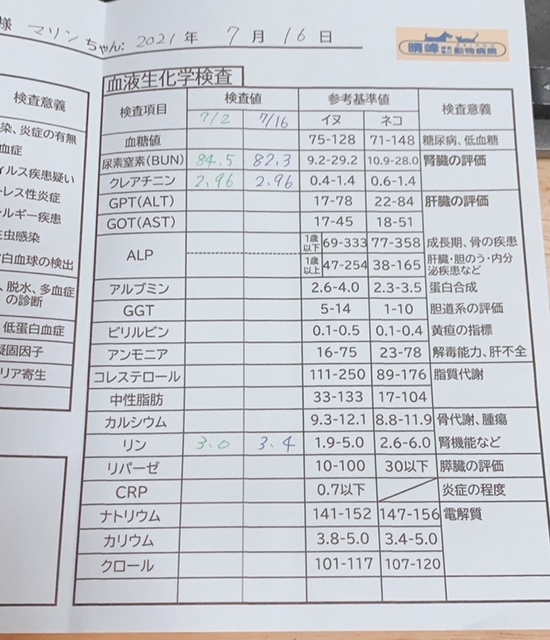 様 マリンちゃん: 2021 年 7 月 16 日
晴峰 動物病院
血液生化学検査
検査項目 検査値 参考基準値 検査意義
7/2 7/16 イヌ ネコ
血糖値 75-128 71-148 糖尿病、低血糖
尿素窒素(BUN) 84.5 82.3 9.2-29.2 10.9-28.0 腎臓の評価
クレアチニン 2.96 2.96 0.4-1.4 0.6-1.4
GPT(ALT) 17-78 22-84 肝臓の評価
GOT(AST) 17-45 18-51
ALP 1歳以下 69-333 77-358 成長期、骨の疾患
1歳以上 47-254 38-165 肝臓・胆のう・内分泌疾患など
アルブミン 2.6-4.0 2.3-3.5 蛋白合成
GGT 5-14 1-10 胆道系の評価
ビリルビン 0.1-0.5 0.1-0.4 黄疸の指標
アンモニア 16-75 23-78 解毒能力、肝不全
コレステロール 111-250 89-176 脂質代謝
中性脂肪 33-133 17-104
カルシウム 9.3-12.1 8.8-11.9 骨代謝、腫瘍
リン 3.0 3.4 1.9-5.0 2.6-6.0 腎機能など
リパーゼ 10-100 30以下 膵臓の評価
CRP 0.7以下 炎症の程度
ナトリウム 141-152 147-156 電解質
カリウム 3.8-5.0 3.4-5.0
クロール 101-117 107-120
検査意義
染、炎症の有無
血症
ィルス疾患疑い
トレス性炎症
ルギー疾患
生虫感染
白血球の検出
、脱水、多血症
の診断
低蛋白血症
凝固因子
リア寄生